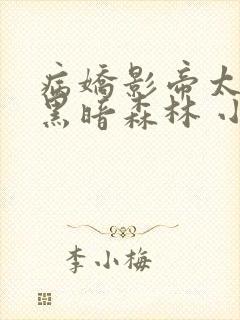 病嬌影帝太
黑暗森林 小
李小梅